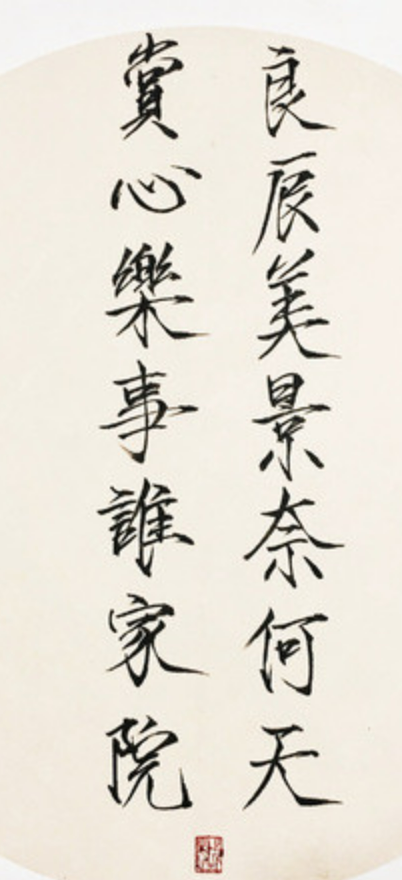 良辰美景奈何天
賞心樂事誰家院